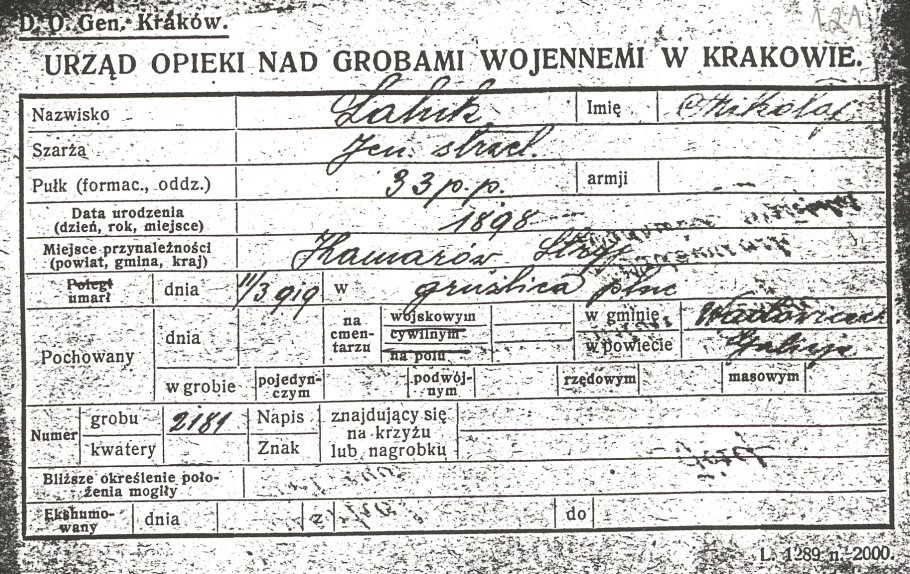 D. O. Gen. Kraków.
121
URZĄD OPIEKI NAD GROBAMI WOJENNEMI W KRAKOWIE.
Nazwisko Łalnik Imię Mikołaj
Szarża Jen. strzel.
Pułk (formac., oddz.) 33 p.p. armji
Data urodzenia
(dzień, rok, miejsce) 1898
Miejsce przynależności
(powiat, gmina, kraj) Kamarów Stryj
Poległ
umarł dnia 11/3 919 w gruźlica płuc
Pochowany dnia na cmentarzu wojskowym cywilnym na polu w gminie Wadowicach
w powiecie Galicja
w grobie pojedynczym podwójnym rzędowym masowym
Numer grobu 2181 Napis znajdujący się
kwatery Znak na krzyżu
lub nagrobku
Bliższe określenie położenia mogiły
Ekshumowany dnia z do
L. 1289 n.-2000.